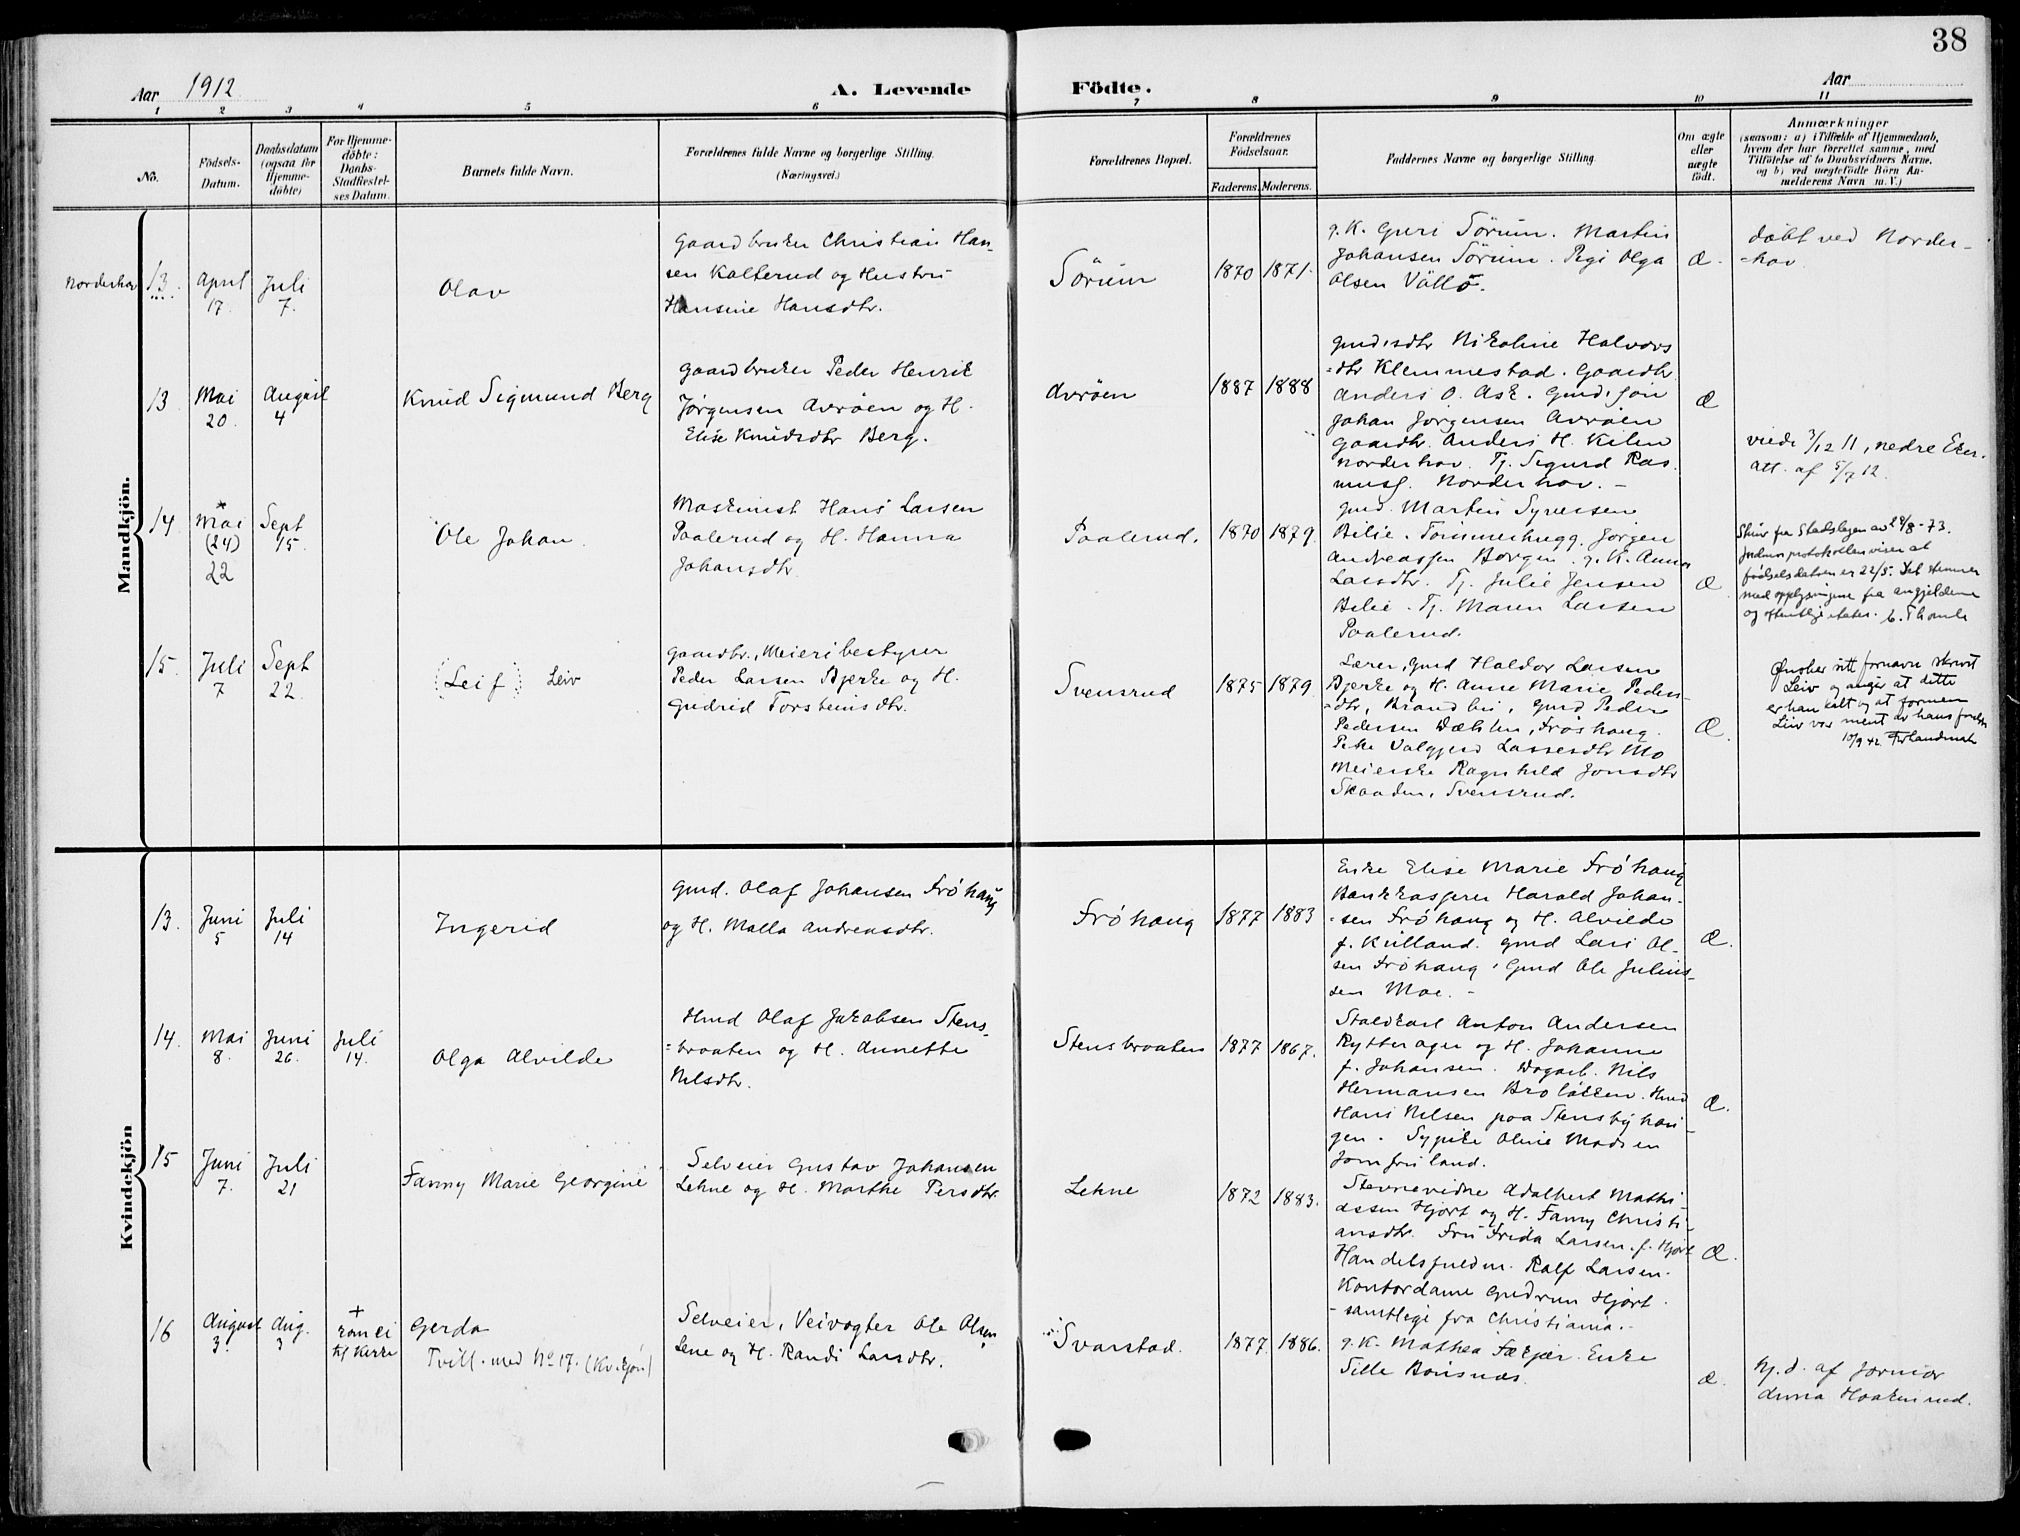 38
Aar 1912
A. Levende Födte.
Aar
1 2 3 4 5 6 7 8 9 10 11
No.
Födsels-
Datum.
Daabsdatum
(ogsaa for
Hjemme-
döbte)
For Hjemme-
döbte:
Daabs-
Stadfæstel-
ses Datum.
Barnets fulde Navn.
Forældrenes fulde Navne og borgerlige Stilling.
(Næringsvei.)
Forældrenes Bopæl.
Forældrenes
Födselsaar.
Faderens. Moderens.
Faddernes Navne og borgerlige Stilling.
Om ægte
eller
uægte
födt.
Anmærkninger
(saasom: a) i Tilfælde af Hjemmedaab,
hvem der har forrettet samme, med
Tilföielse af to Daabsvidners Navne,
og b) ved uægtefödte Börn An-
melderens Navn m. V.)
Mandkjön.
Norderhov
13
April
17.
Juli
7.
Olav
Gaardbruker Christian Han-
sen Kolterud og Hustru
Hansine Hansdtr.
Sørum
1870 1871.
g. K. Guri Sørum. Martin
Johansen Sørum. Pige Olga
Olsen Vällö.
Æ.
døbt ved Norder-
-hov.
13
Mai
20.
August
4
Knud Sigmund Berg
Gaardbruker Peder Henrik
Jørgensen Avrøen og H.
Elise Knudsdtr Berg.
Avrøen
1887 1888
Gmd.sdtr Nikoline Halvors
=dtr Klemmestad. Gaardbr.
Anders O. Ask. Gmd. søn
Johan Jørgensen Avrøen
Gaardbr. Anders H. Kilen
Norderhov. Tj. Sigurd Ras
musf. Norderhov. –
Æ
viede 3/12 11, nedre Eker.
att. af 5/7 12.
14
Mai
(24)
22
Sept
15.
Ole Johan
Maskinist Hans Larsen
Paalerud og H. Hanna
Johansdtr.
Paalerud.
1870 1879.
Gmd. Martin Syversen
Bilie. Tømmerhugg. Jørgen
Andreassen Borgen. g. K. Anna
Larsdtr. Tj. Julie Jensen
Bilie. Tj. Maren Larsen
Paalerud.
Æ.
fødselsdatoen er 22/5. Det stemmer
med opplysningene fra angjeldene
15.
Juli
7
Sept
22.
(Leif) Leiv
Gaardbr., Meieribestyrer
Peder Larsen Bjerke og H.
Gudrid Torsteinsdtr.
Svensrud
1875 1879
Lærer, Gmd Haldor Larsen
Bjerke og H. Anne Marie Peders-
=dtr, Brandbu, Gmd Peder
Pedersen Dæhlen, Frøshaug.
Pike Valgjerd Lassesdtr Mo
Meierske Ragnhild Jonsdtr
Skaaden, Svensrud.
Æ.
Ønsker sitt fornavn skrevet
Leiv og angir at dette
er han kalt og at formen
Leiv var ment av hans foreldre
10/9 42.
Kvindekjön
13.
Juni
5
Juli
14
Ingerid
Gmd. Olaf Johansen Frøhaug
og H. Malla Andreasdtr.
Frøhaug
1877 1883
Enke Elise Marie Frøhaug
Bankkasserer Harald Johan-
=sen Frøhaug og H. Alvilde
f. Kulland. Gmd Lars Ol-
sen Frøhaug, Gmd Ole Julius-
sen Moe. –
Æ.
14.
Mai
8.
Juni
26.
Juli
14.
Olga Alvilde
Hmd Olaf Jakobsen Stens-
=braaten og H. Annette
Nilsdtr.
Stensbraaten
1877 1867.
Staldkarl Anton Andersen
Rytterager og H. Johanne
f. Johansen. Dagarb. Nils
Hermansen Broløkken. Hmd
Hans Nilsen paa Stensbyhau-
gen. Sypike Oline Madsen
Jomfruland.
Æ.
15
Juni
7.
Juli
21
Fanny Marie Georgine
Selveier Gustav Johansen
Lehne og H. Marthe Persdtr.
Lehne
1872 1883.
Stevnevidne Adalbert Mathi-
assen Hjort og H. Fanny Christi-
ansdtr. Fru Frida Larsen, f. Hjort
Handelsfuldm. Ralf Larsen.
Kontordame Gudrun Hjort.
- samtlige fra Christiania. -
Æ.
16
August
3.
Aug.
3
+
kom ei
til Kirke
Gerda
Tvill. med No 17. (Kv.kjøn)
Selveier, Veivogter Ole Olsen
Lene og H. Randi Larsdtr.
Svarstad.
1877. 1886.
g. K. Mathea Fækjær. Enke
Sille Bønsnæs.
Æ.
hj. d. af Jormor
Anna Haakenrud.